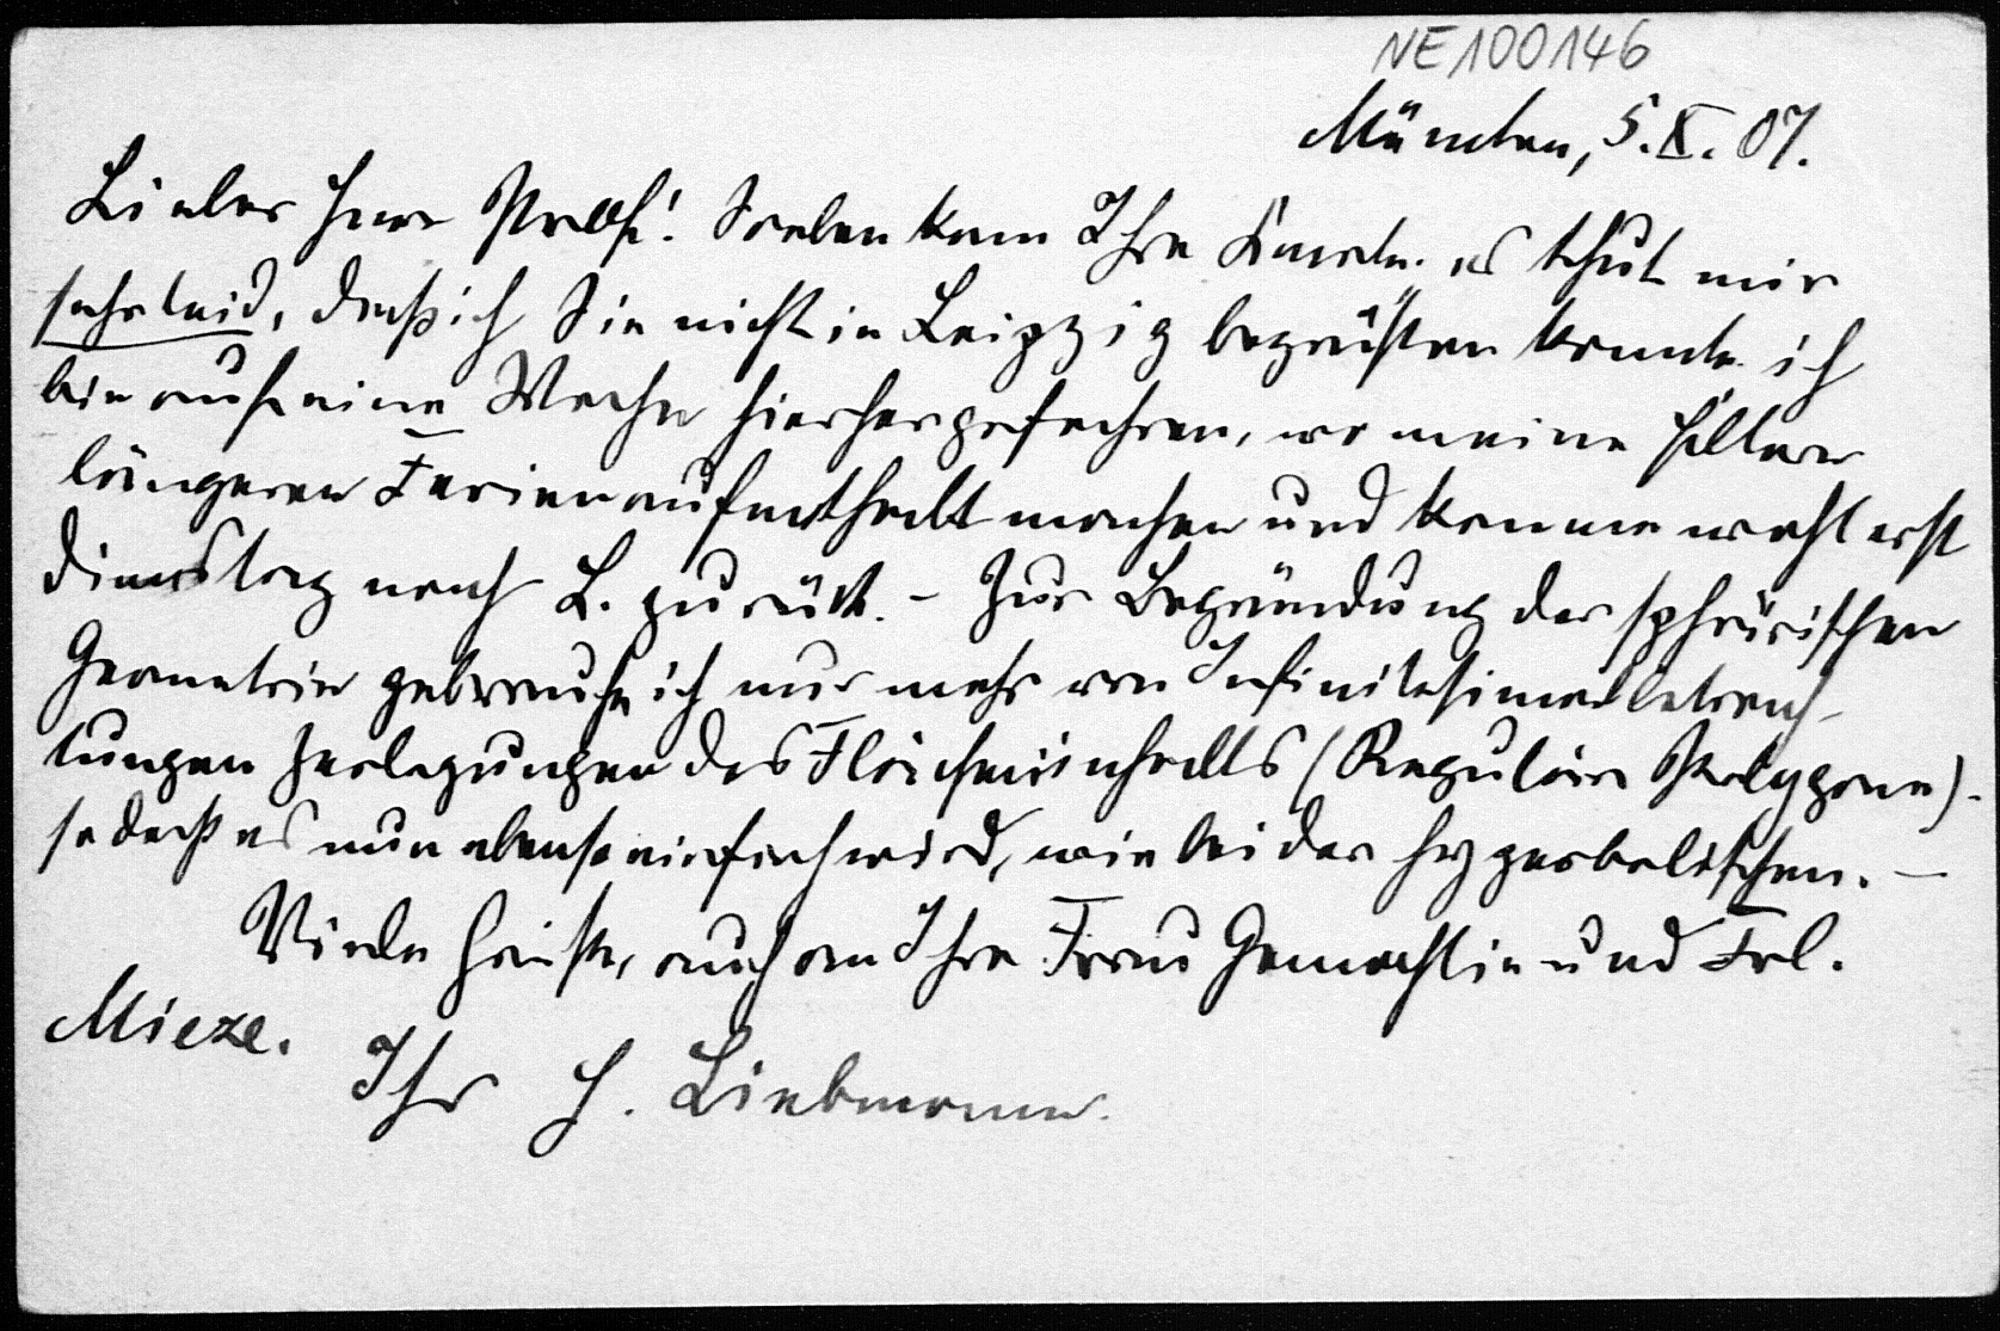 NE100146
München, 5.X.07.
Lieber Herr Prof.! Soeben kam Ihre Karte. es thut mir
sehr leid, daß ich Sie nicht in Leipzig begrüßen konnte. ich
bin auf eine Woche hierher gefahren, wo meine Eltern
längeren Ferienaufenthalt machen und komme wohl erst
Dienstag nach L. zurück. – Zur Begründung der sphärischen
Geometrie gebrauche ich nur mehr von Infinitesimalbetrach-
tungen Zerlegungen des Flächeninhalts (Reguläre Polygone).
so daß es nun ebenso einfach wird, wie bei der hyperbolischen. –
Viele Grüße, auch an Ihre Frau Gemahlin und Frl.
Mieze.
Ihr H. Liebmann.